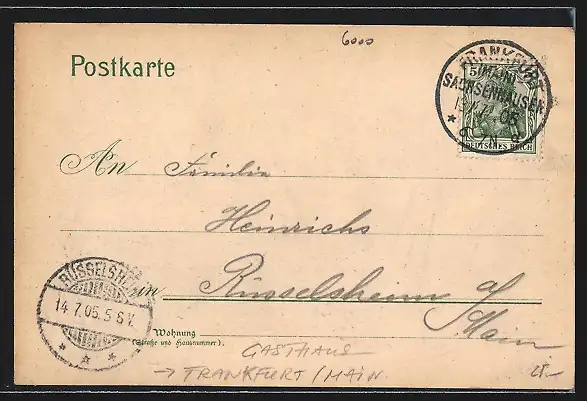 6000
Postkarte
FRANKFURT
(MAIN)
SACHSENHAUSEN
05
DEUTSCHES REICH
An Familie
Heinrichs
in Rüsselsheim a/
Main
RÜSSELSHEIM
14.7.05.5-6V.
Wohnung
(Straße und Hausnummer).
GASTHAUS
→ FRANKFURT / MAIN